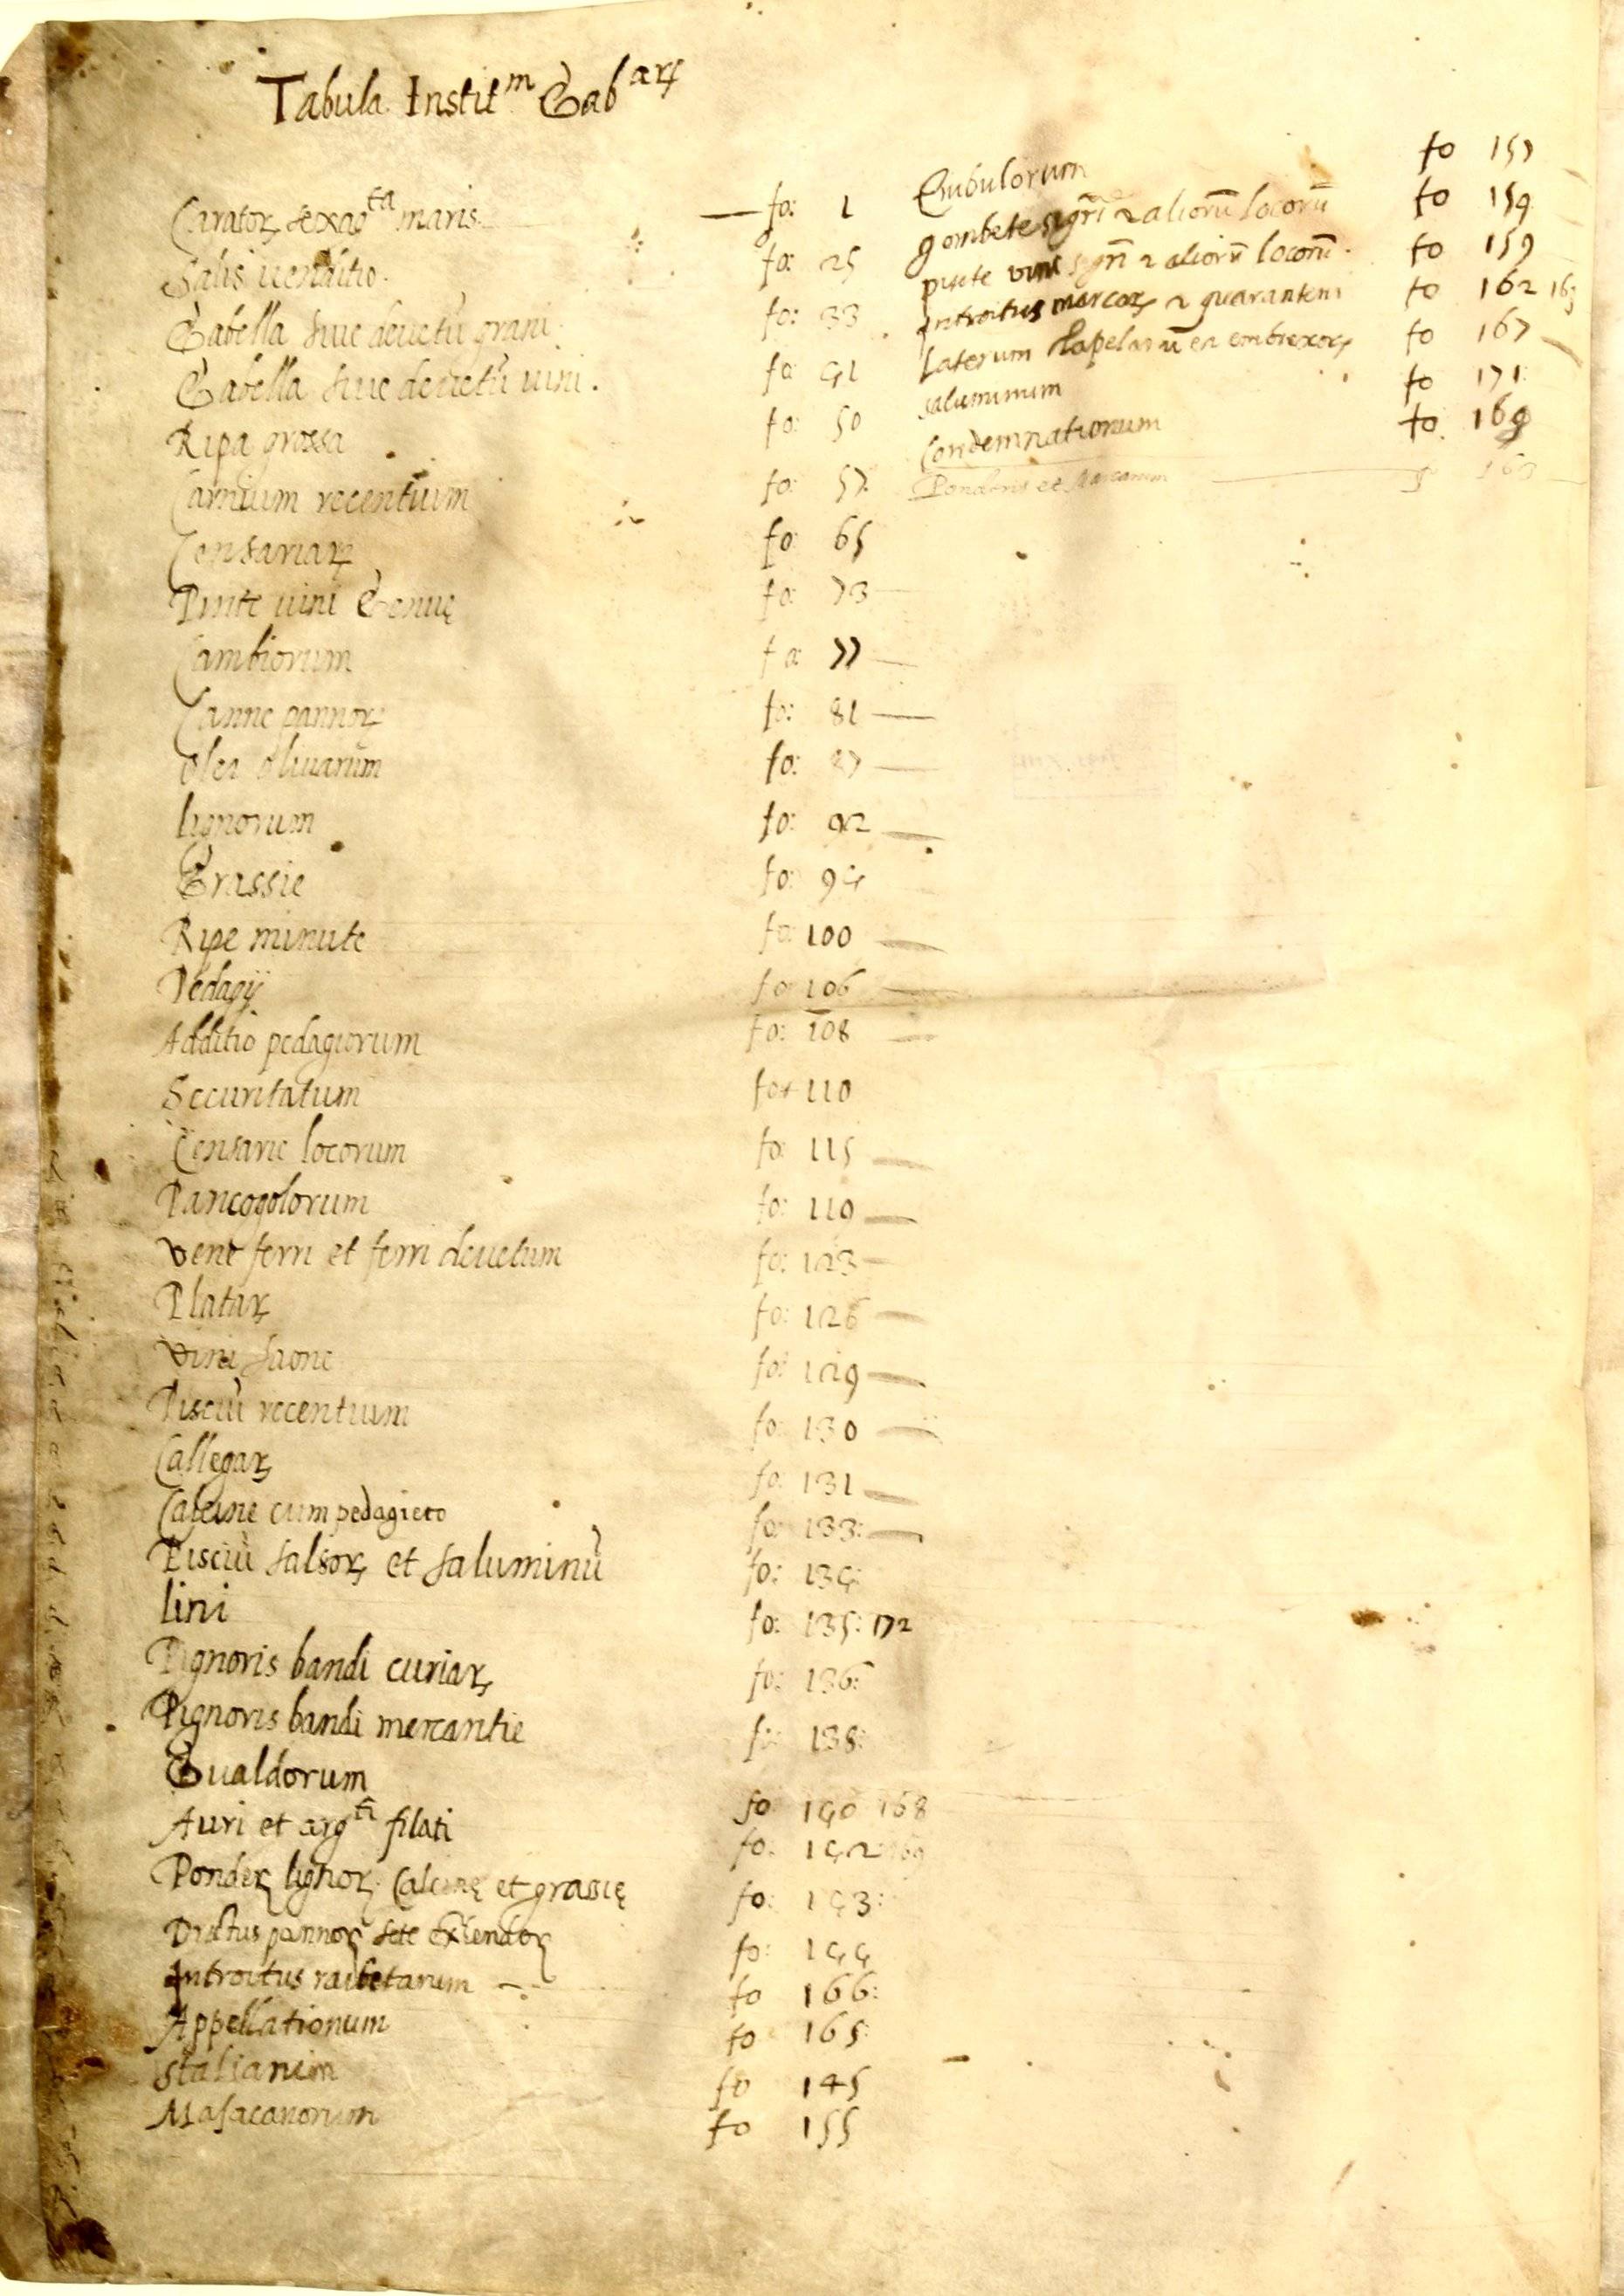 Tabula Instit^m Gab^arꝝ
Caratorꝝ sexag^ta maris fo: 1
Salis venditio fo: 25
Gabella siue deuetũ grani fo: 33
Gabella siue deuetũ uini fo: 41
Ripa grossa fo: 50
Carnium recentium fo: 57
Censariarꝝ fo: 65
Pinte uini Genuę fo: 73
Cambiorum fo: 77
Canne pannorꝝ fo: 81
Olei oliuarum fo: 87
lignorum fo: 92
Grassie fo: 94
Ripe minute fo: 100
Pedagij fo: 106
Additio pedagiorum fo: 108
Securitatum fo: 110
Censarie locorum fo: 115
Pancogolorum fo: 119
Vene ferri et ferri deuetum fo: 123
Platarꝝ fo: 126
Vini saone fo: 129
Pisciũ recentium fo: 130
Callegarꝝ fo: 131
Calcine cum pedagieto fo: 133:
Pisciũ salsorꝝ et saluminũ fo: 134:
lini fo: 135: 172
Pignoris bandi curiarꝝ fo: 136:
Pignoris bandi mercantie fo: 138:
Gualdorum fo 140 168
Auri et arg^ti filati fo: 142 169
Ponderꝝ lignorꝝ Calcinę et grassię fo: 143:
Drictus pannorꝝ sete fo: 144
Introitus raibetarum fo 166:
Appellationum fo 165:
Stalianim fo 145
Masacanorum fo 155
Embulorum fo 157
gombete 2 aliorũ locorũ fo 159
pinte vini 2 aliorũ locorũ fo 159
Introitus marcarꝝ 2 quaranteni fo 162 163
laterum Clapelarũ et embrexorꝝ fo 167
saluminum fo 171
Condemnationum fo 169
Ponderis et Marcarum 163